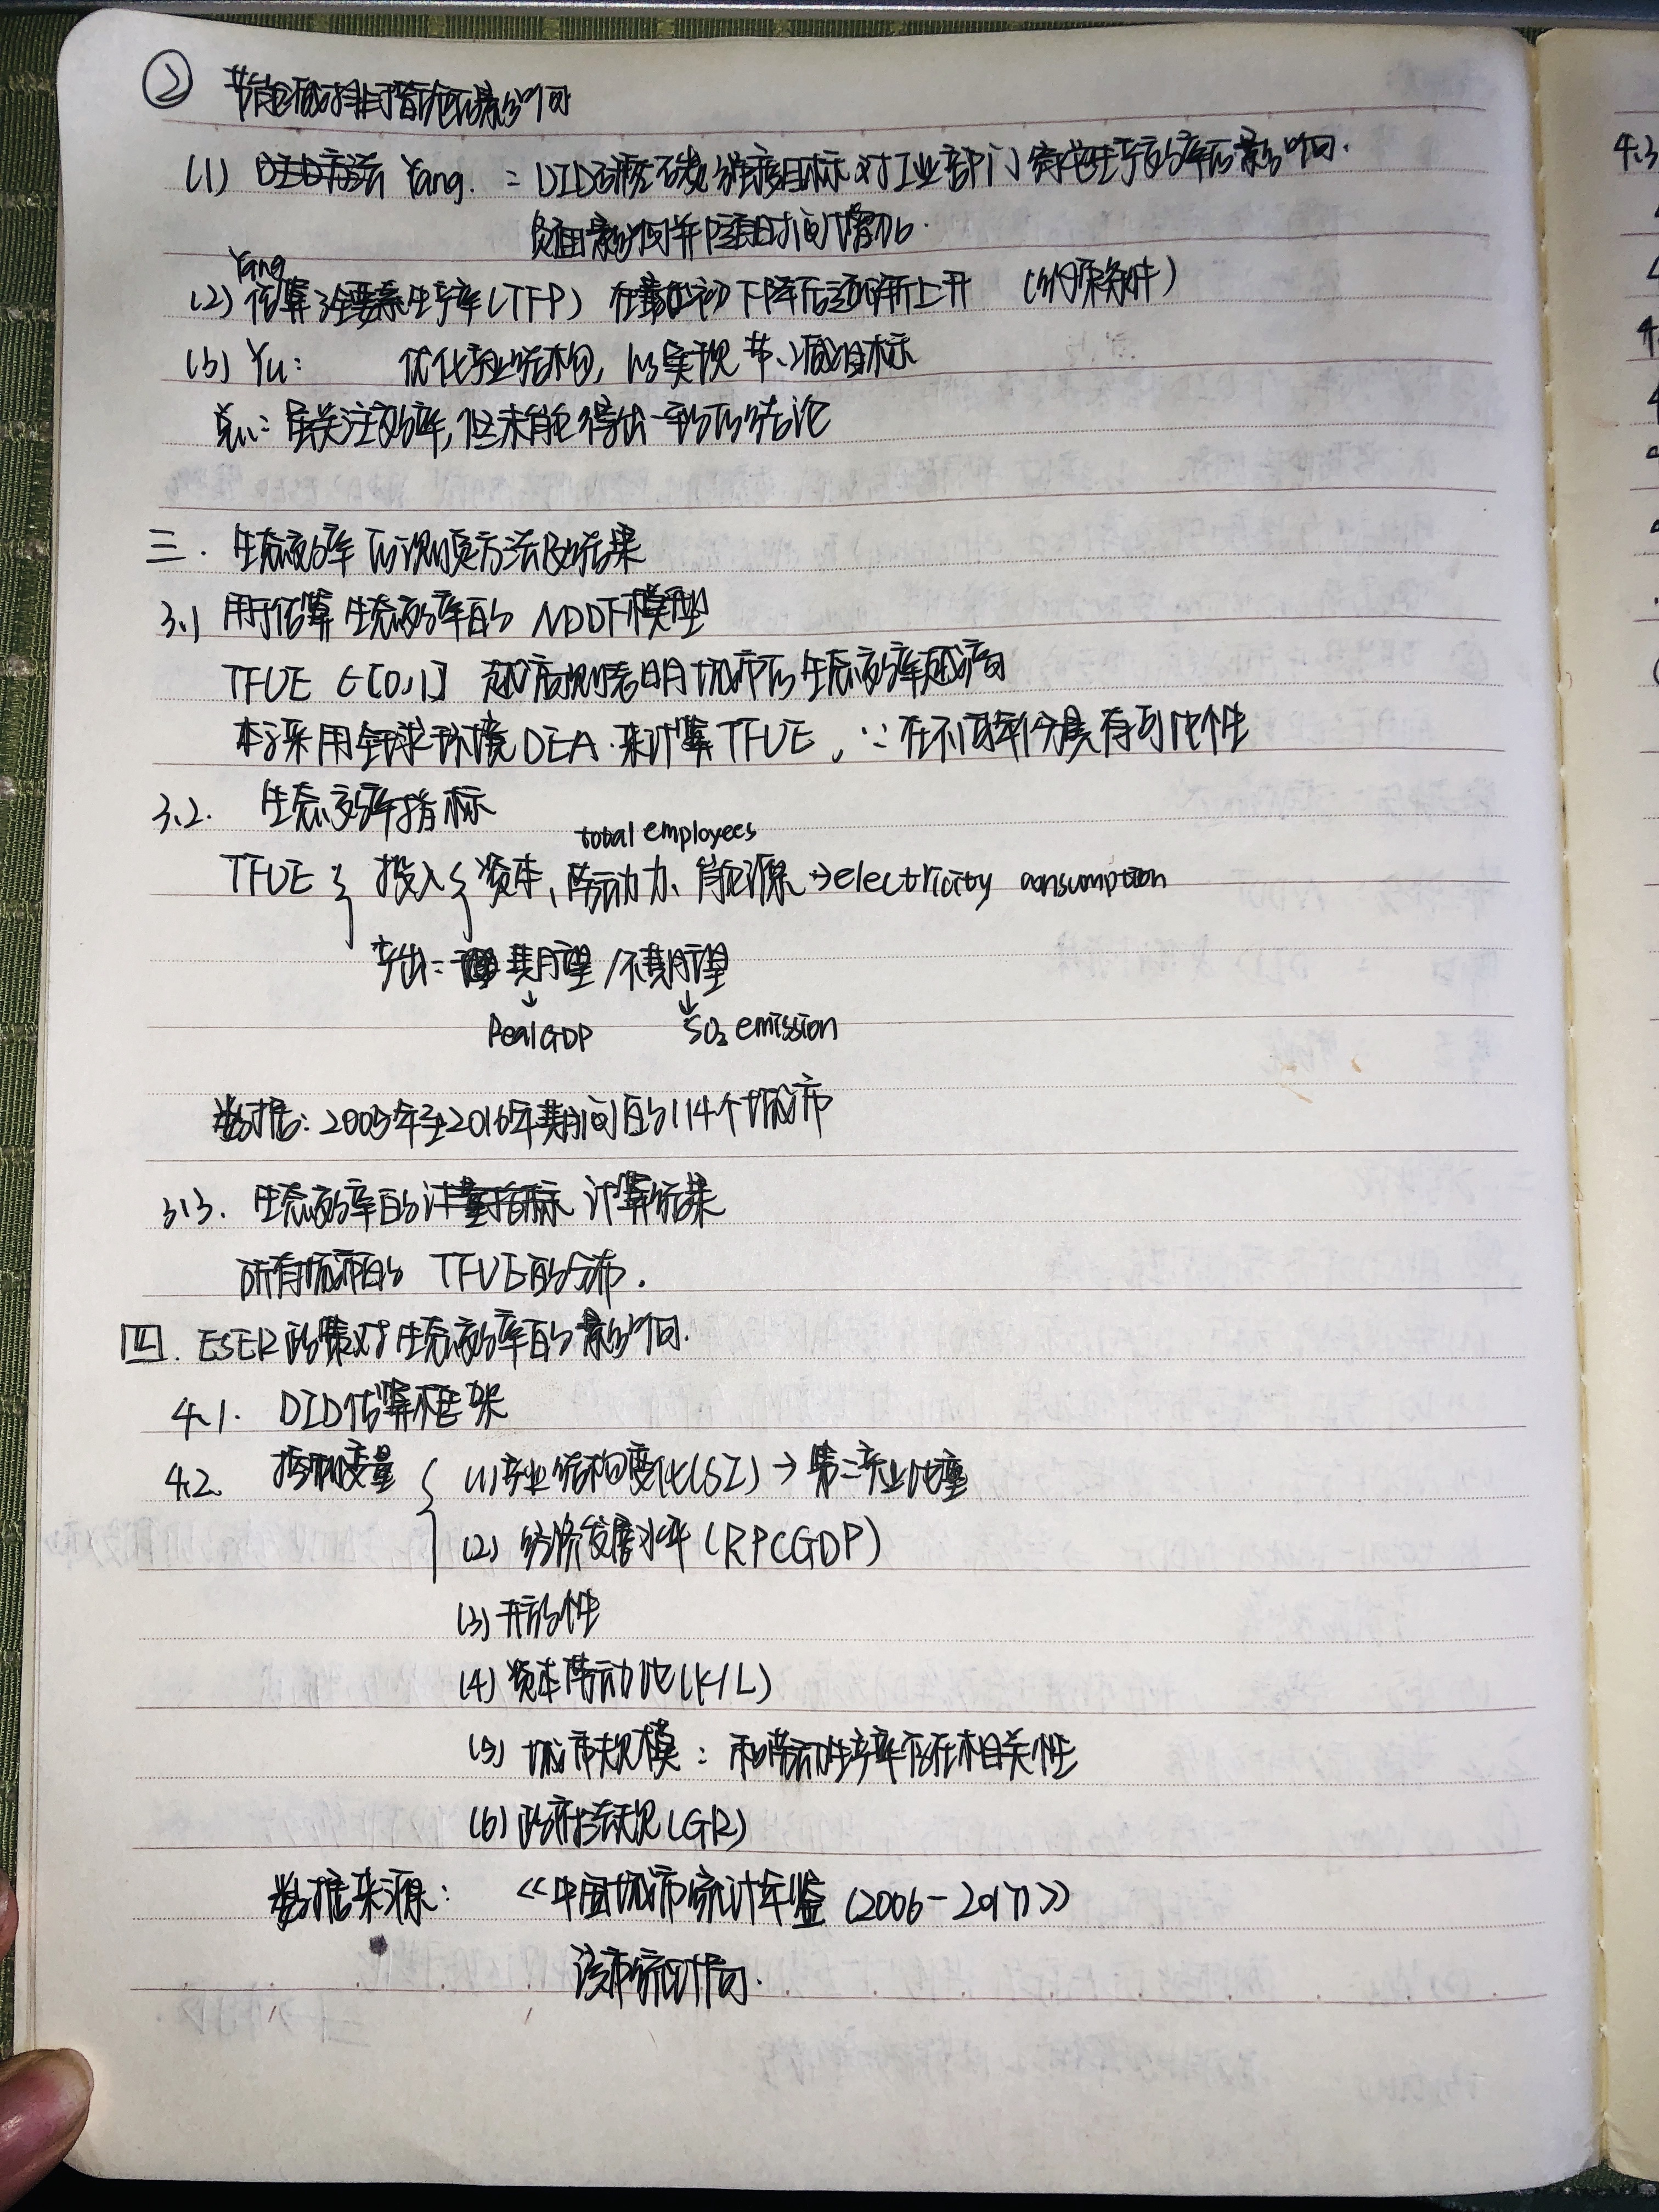 ② 节能减排指标的影响
(1) Yang : DID 对工业部门 绿色生产效率的影响.
负面影响并随着时间增加.
Yang
(2) 估算 全要素生产率(TFP) 在最初下降后逐渐上升 (条件)
(3) Yu: 优化产业结构, 以实现 节、减目标
总: 虽关注效率, 但未能得出一致的结论
三. 生态效率的测度方法及结果
3.1 用于估算 生态效率的 NDDF模型
TFUE ∈[0,1] 越高则表明城市的生态效率越高
本文采用全球环境DEA 来计算TFUE, ∵在不同年份具有可比性
3.2. 生态效率指标
total employees
TFUE { 投入{ 资本、劳动力、能源→electricity consumption
产出: 期望/不期望
↓ ↓
Real GDP SO₂ emission
数据: 2005年至2016年期间的114个城市
3.3. 生态效率的 计算结果
所有城市的 TFUE的分布.
四. ESER政策对生态效率的影响.
4.1. DID估算框架
4.2. 控制变量 { (1)产业结构变化(SI)→第二产业比重
(2) 经济发展水平(RPCGDP)
(3) 开放性
(4) 资本劳动比(K/L)
(5) 城市规模: 和劳动生产率存在相关性
(6) 政府法规(GR)
数据来源: 《中国城市统计年鉴(2006-2017)》
该市统计局.
4.3